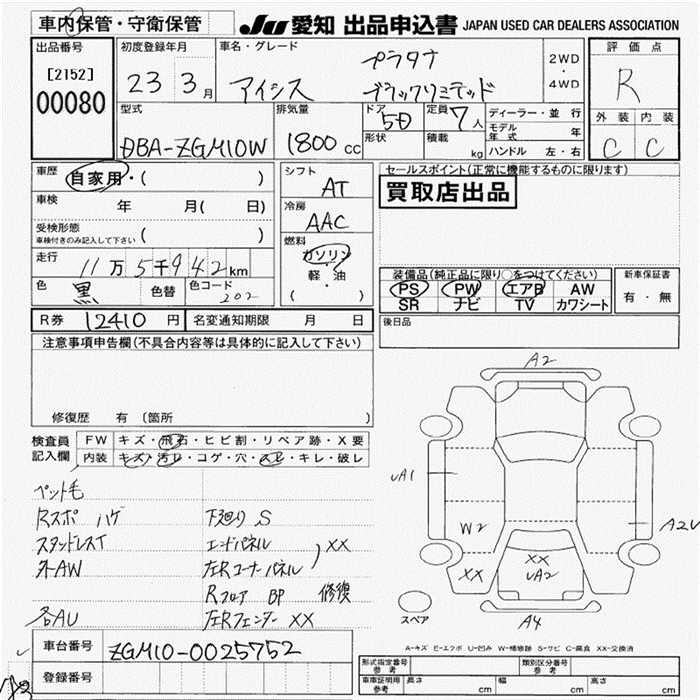 車内保管・守衛保管 JU 愛知 出品申込書 JAPAN USED CAR DEALERS ASSOCIATION
出品番号 初度登録年月 車名・グレード プラタナ 2WD・4WD 評価点
[2152] 23 3月 アイシス ブラックリミテッド R
00080
型式 排気量 ドア 定員 ディーラー・並行 外装 内装
DBA-ZGM10W 1800cc 5D 7人 モデル年式 年 C C
形状 積載 kg ハンドル 左・右
車歴 自家用・( )
シフト AT
セールスポイント(正常に機能するものに限ります)
買取店出品
車検 年 月( 日)
冷房 AAC
受検形態 車検付きのみ記入して下さい ( )
走行 11万5千942km
燃料 ガソリン・軽・油 ( )
装備品(純正品に限り○をつけてください) 新車保証書
PS PW エアB AW 有・無
SR ナビ TV カワシート
色 黒 色替 色コード 202
R券 12410円 名変通知期限 月 日
後日品
注意事項申告欄(不具合内容等は具体的に記入して下さい)
修復歴 有 〔箇所 〕
検査員記入欄 FW キズ・飛石・ヒビ割・リペア跡・X要
内装 キズ・汚レ・コゲ・穴・スレ・キレ・破レ
ペット毛
Rスポ ハゲ 下廻り S
スタッドレスT エンドパネル
外AW 左Rコーナーパネル ) XX
Rフロア BP 修復
各AU 左Rフェンダー XX
A2
UA1
A2U
W2
XX
XX
UA2
XX
A4
スペア
A-キズ E-エクボ U-凹み W-補修跡 S-サビ C-腐食 XX-交換済
車台番号 ZGM10-0025752
登録番号
形式指定番号 参考 類別区分番号 参考
車庫証明用 参考 長さ cm 幅 cm 高さ cm